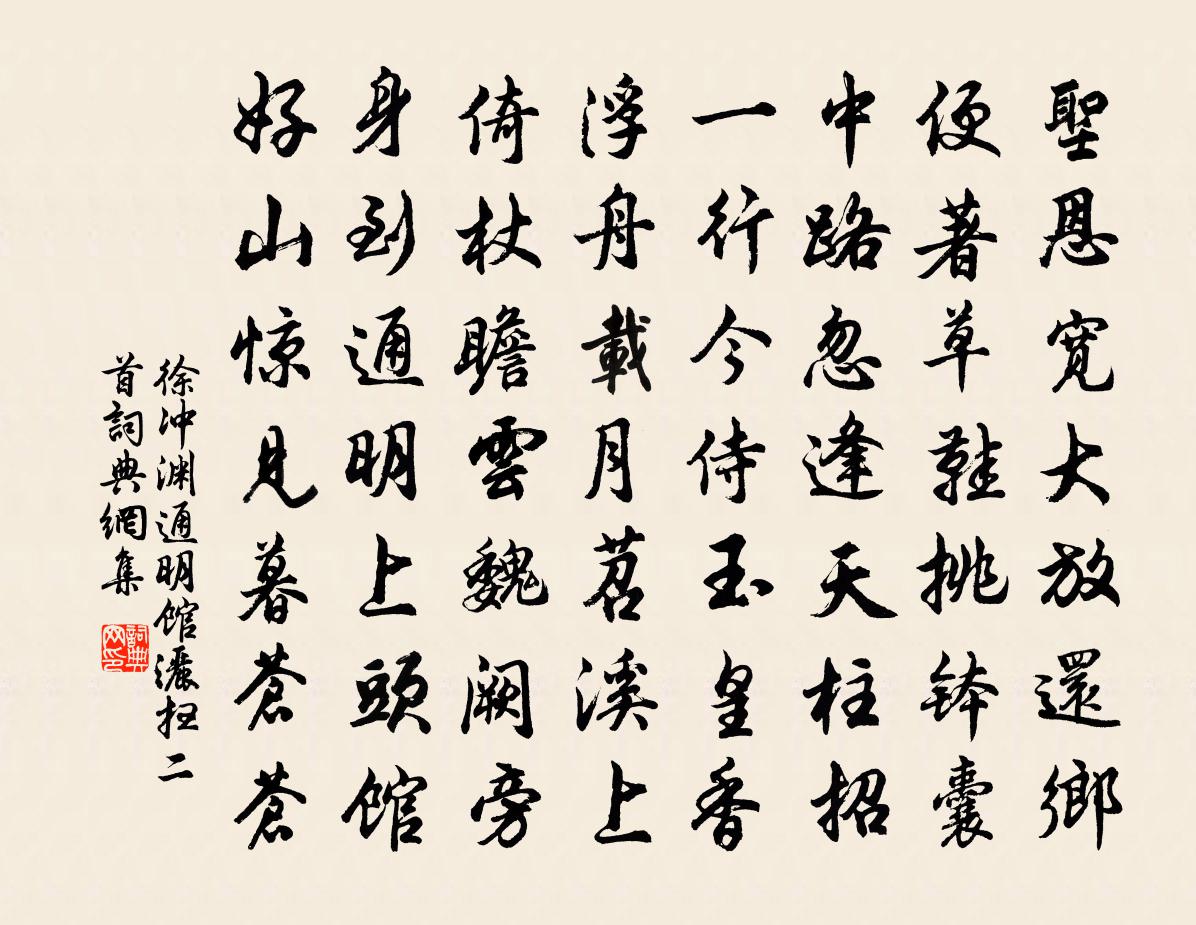 聖恩寬大放還鄉
便著草鞋挑鉢囊
中路忽逢天柱招
一行今侍玉皇香
浮舟載月苕溪上
倚杖瞻雲魏闕旁
身到通明上頭館
好山惊見暮蒼蒼
徐沖渊通明館灑扫二
首詞典網集
詞典網印